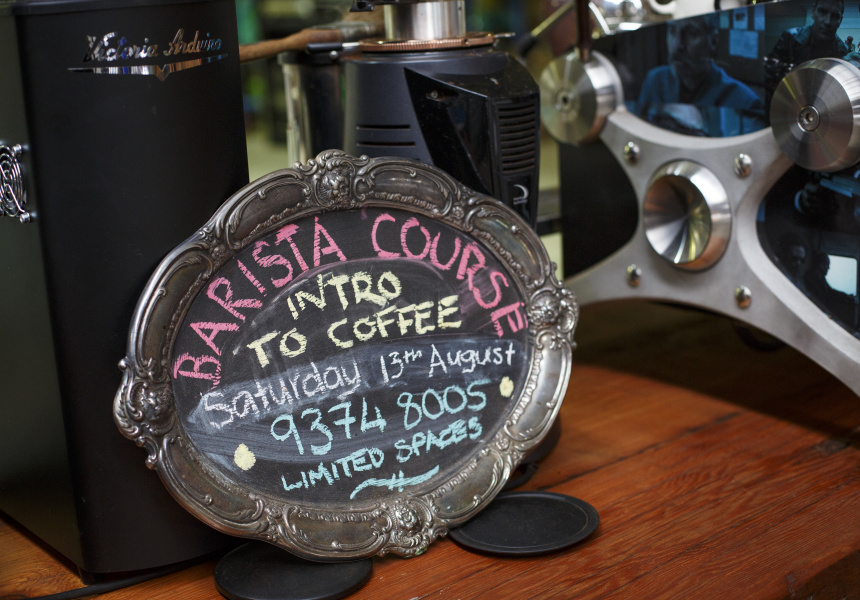 Victoria Arduino
BARISTA COURSE
INTRO
TO COFFEE
Saturday 13th August
9374 8005
LIMITED SPACES